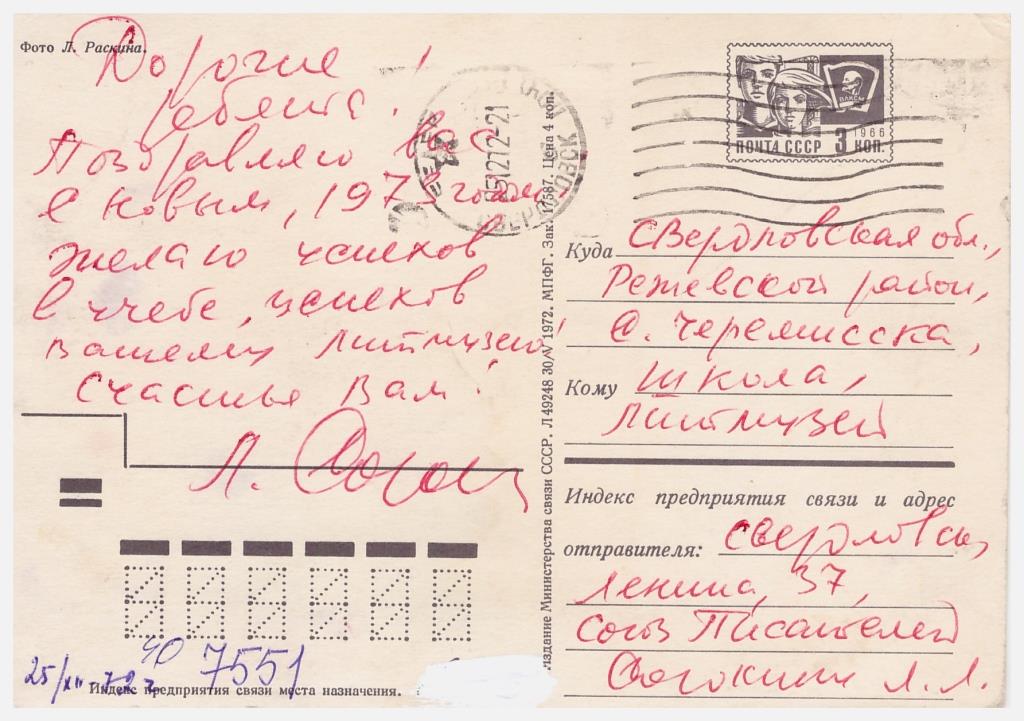 Фото Л. Раскина.
Дорогие
ребята!
Поздравляю вас
с новым, 1973 годом,
желаю успехов
в учебе, успехов
вашему литмузею!
Счастья Вам!
Л. Сорокин
ВЛКСМ
1966
ПОЧТА СССР 3 КОП.
251272-21
Куда Свердловская обл.,
Режевской район,
с. Черемисска,
Кому Школа,
Литмузей
Индекс предприятия связи и адрес
отправителя: Свердловск,
Ленина, 37,
Союз Писателей
Сорокин Л. Л.
Издание Министерства связи СССР. Л 49248 30/V 1972. МПФГ. Зак. 17587. Цена 4 коп.
ЧО 7551
25/XII-72 г
Индекс предприятия связи места назначения.